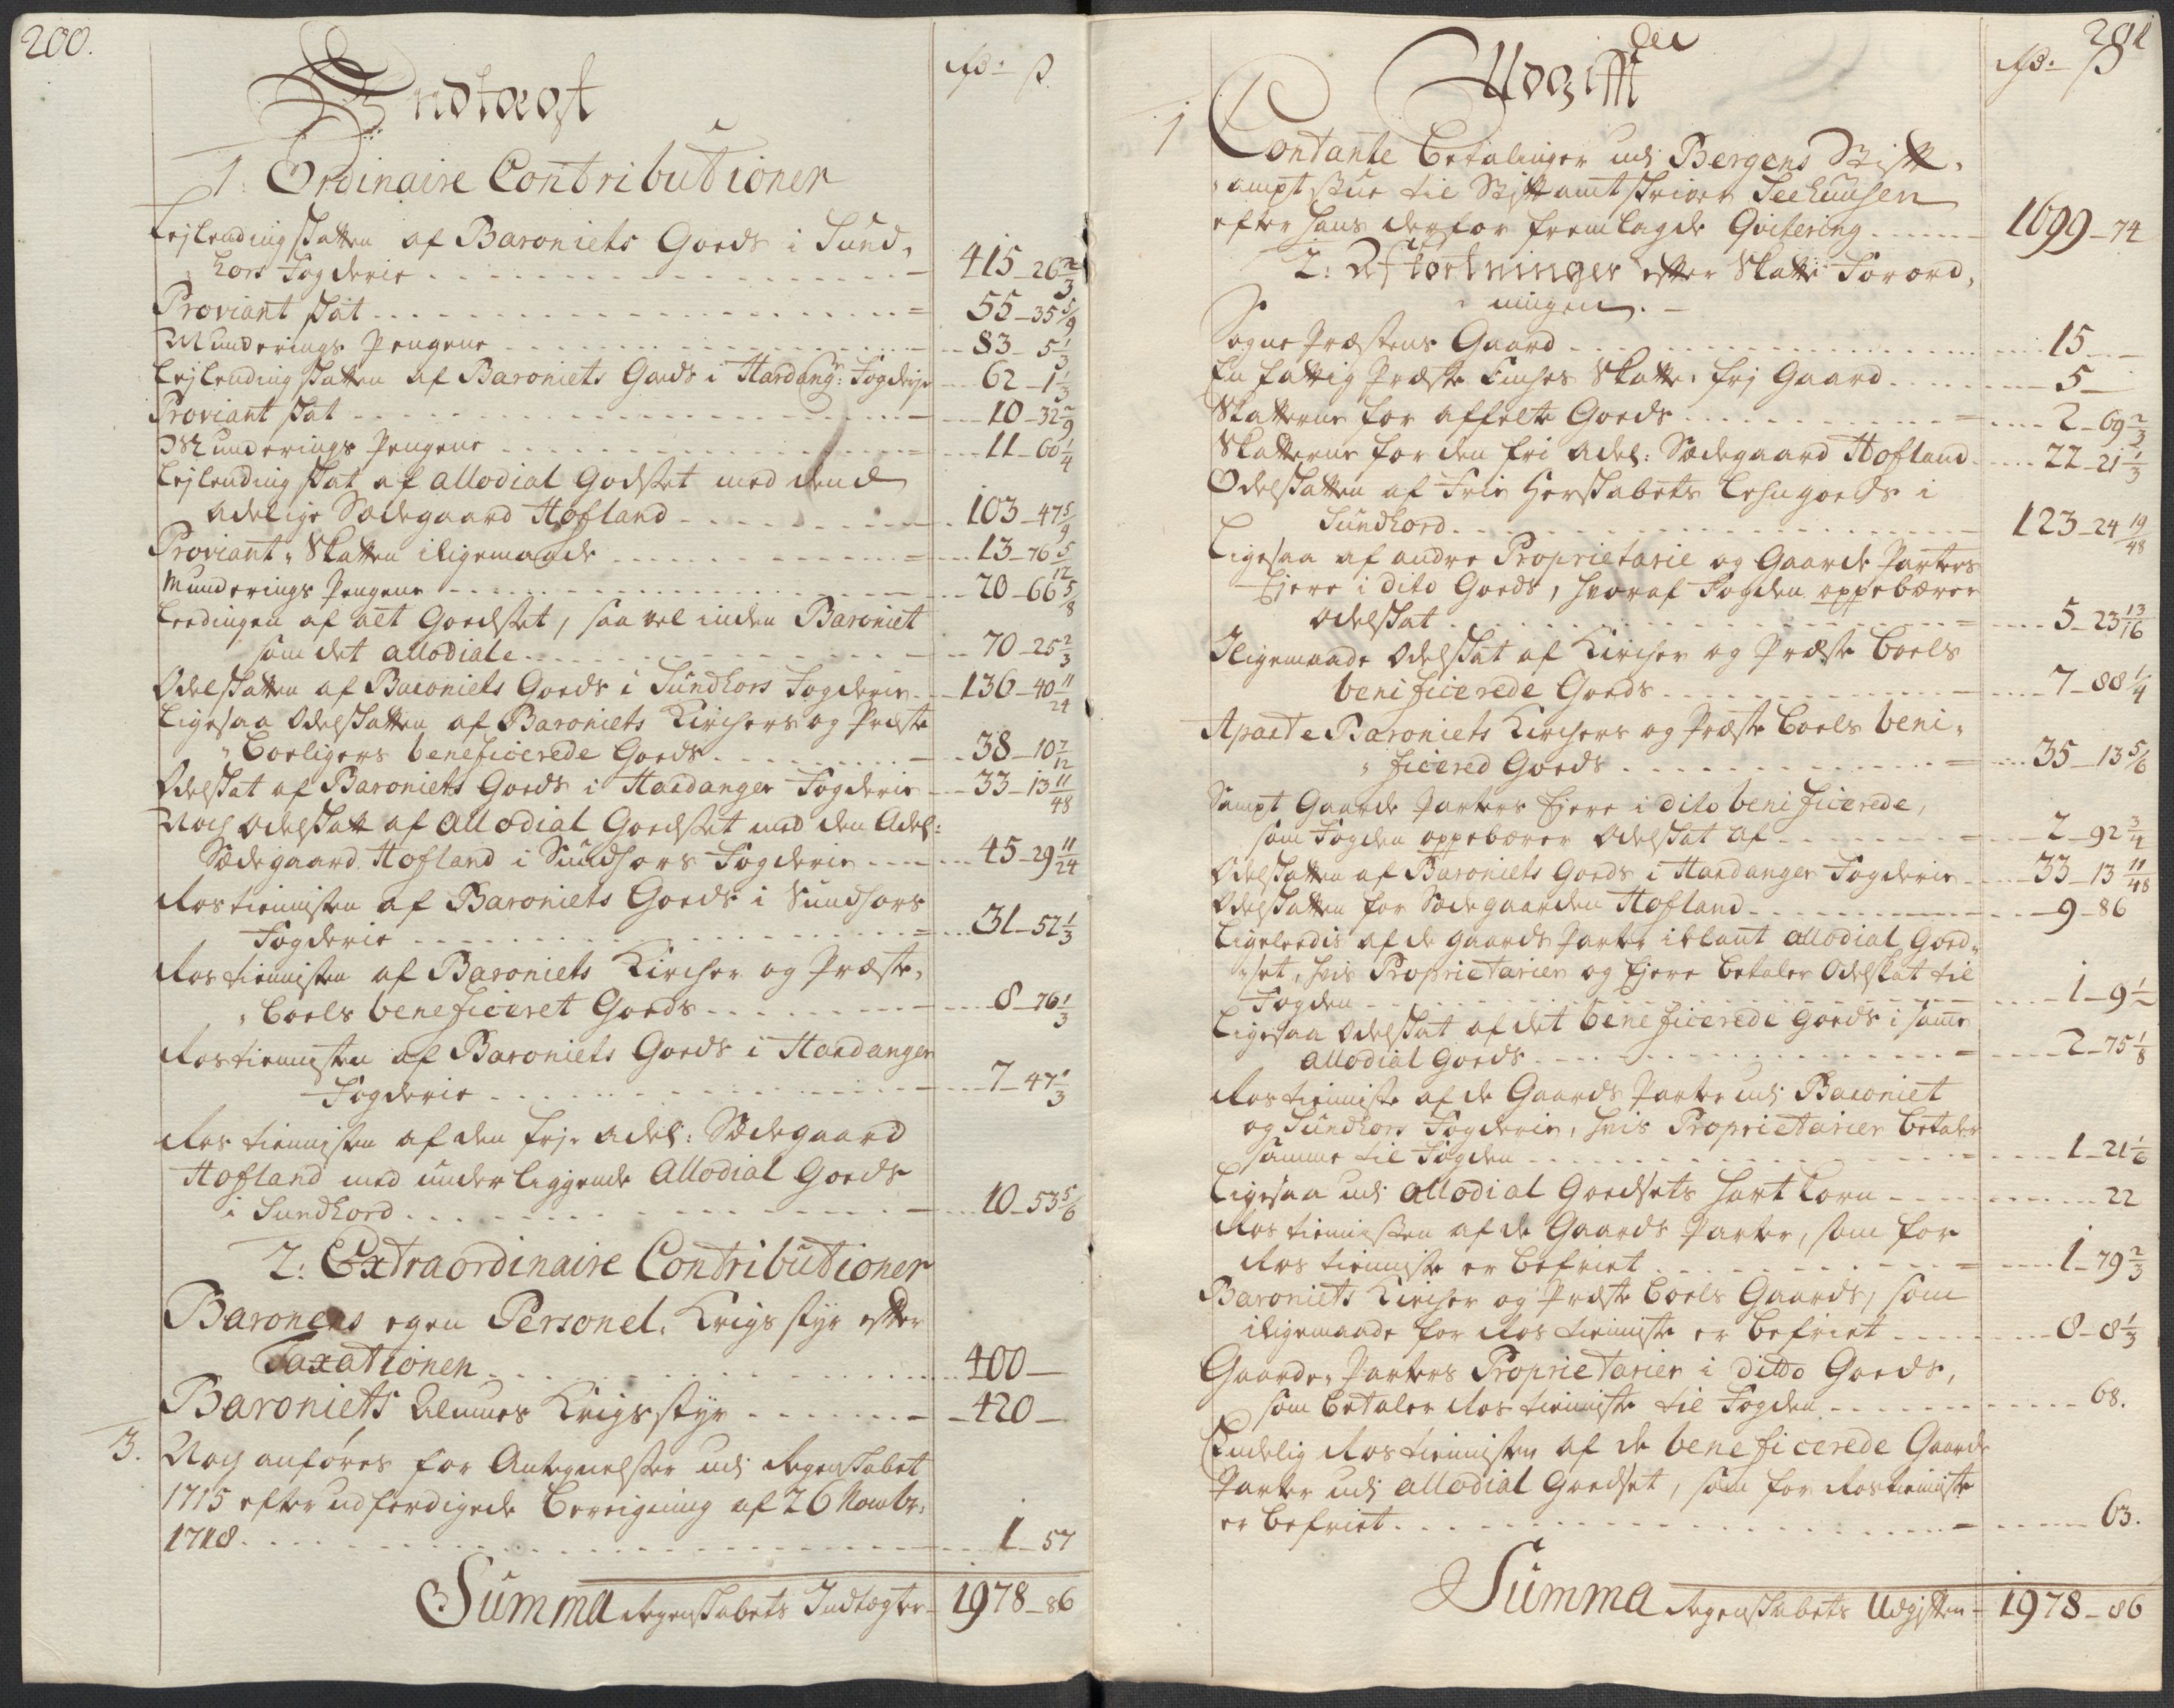 200.
Indtægt
Rd: ß
1: Ordinaire Contributioner
Lejlendingskatten af Baroniets Goeds i Sund-
hors Fogderie 415-26 2/3
Proviant skat 55-35 5/9
Munderings Pengene 83-5 1/3
Lejlendingskatten af Baroniets Goeds i Hardangr: Fogderje 62-1 1/3
Proviant skat 10-32 2/9
Munderings Pengene 11-60 1/4
Lejlendingskat af allodial Godset med dend
adelige Sædegaard Hofland 103-47 5/9
Proviant-Skatten iligemaade 13-76 5/12
Munderings Pengene 20-66 5/8
Leedingen af alt Goedset, saa vel inden Baroniet
som det allodiale 70-25 2/3
Odelskatten af Baroniets Goeds i Sundhors Fogderie 136-40 11/24
Ligesaa Odelskatten af Baroniets Kirchers og Præste
Boeligers beneficerede Goeds 38-10 7/12
Odelskat af Baroniets Goeds i Hardanger Fogderie 33-13 11/48
Noch Odelskatt af Allodial Goedset med den Adel:
Sædegaard Hofland i Sundhors Fogderie 45-29 11/24
Rostienisten af Baroniets Goeds i Sundhors
Fogderie 31-52 1/3
Rostienisten af Baroniets Kircher og Præste-
Boels beneficeret Goeds 8-76 1/3
Rostienisten af Baroniets Goeds i Hardanger
Fogderie 7-47 1/3
Rostienisten af den frj. adel: Sædegaard
Hofland med underliggende Allodial Goeds
i Sundhord 10-53 5/6
2: Extraordinaire Contributioner
Baronens egen Personel. Krigsstyr efter
Taxationen 400-
Baroniets Almues Krigsstyr 420-
3. Noch anføres for Antegnelser udj Regenskabet
1715 efter udferdigede Bereigning af 26 Novembr:
1718 1-57
Summa Regenskabets Indtægter 1978-86
201
Udgifft
Rd: ß
1 Contante Betalinger udj Bergens Stift-
ampt stue til Stiftamtskriver Seehuusen
efter hans derfor fremlagde Qvitering 1699-74
2: Afkortninger efter Skatte Forord-
ningen.
Sogne Præstens Gaard 15-
En fattig Præste Enches Skatte frj Gaard 5-
Skatterne for affelte Goeds 2-69 2/3
Skatterne for den fri Adel: Sædegaard Hofland 22-21 1/3
Odelskatten af Frie Herskabets Lehngoeds i
Sundhord 123-24 19/48
Ligesaa af andre Proprietarie og Gaarde Parters
Ejere i dito Goeds, hvoraf Fogden oppebærer
Odelskat 5-23 13/16
Iligemaade Odelskat af Kircher og Præste Boels
benificerede Goeds 7-88 1/4
Aparte Baroniets Kirchers og Præste Boels beni-
ficered Goeds 35-13 5/6
Sampt Gaarde Parters Ejere i dito benificerede,
som Fogden oppebærer Odelskat af 2-92 3/4
Odelskatten af Baroniets Goeds i Hardanger Fogderie 33-13 11/48
Odelskatten for Sædegaarden Hofland 9-86
Ligeleedis af de gaards Parter iblant allodial Goed-
set, hvis Proprietarier og Ejere betaler Odelskat til
Fogden 1-9 1/2
Ligesaa Odelskat af det beneficerede goeds i samme
allodial Goeds 2-75 1/8
Rostieniste af de Gaards Parter udj Baroniet
og Sundhors Fogderie, hvis Proprietarier betaler
samme til Fogden 1-21 1/6
Ligesaa udj allodial Goedsets hart korn 22
Rostienisten af de Gaards Parter, som for
Rostieniste er befriet 1-79 2/3
Baroniets Kircher og Præste Boels Gaards, som
iligemaade for Rostieniste er befriet 8-8 1/3
Gaarde-Parters Proprietarier i ditto Goeds,
som betaler Rostieniste til Fogden 68.
Endelig Rostienisten af de beneficerede Gaards
Parter udj allodial Goedset, som for Rostieniste
er befriet 63.
Summa Regenskabets Udgifter 1978-86